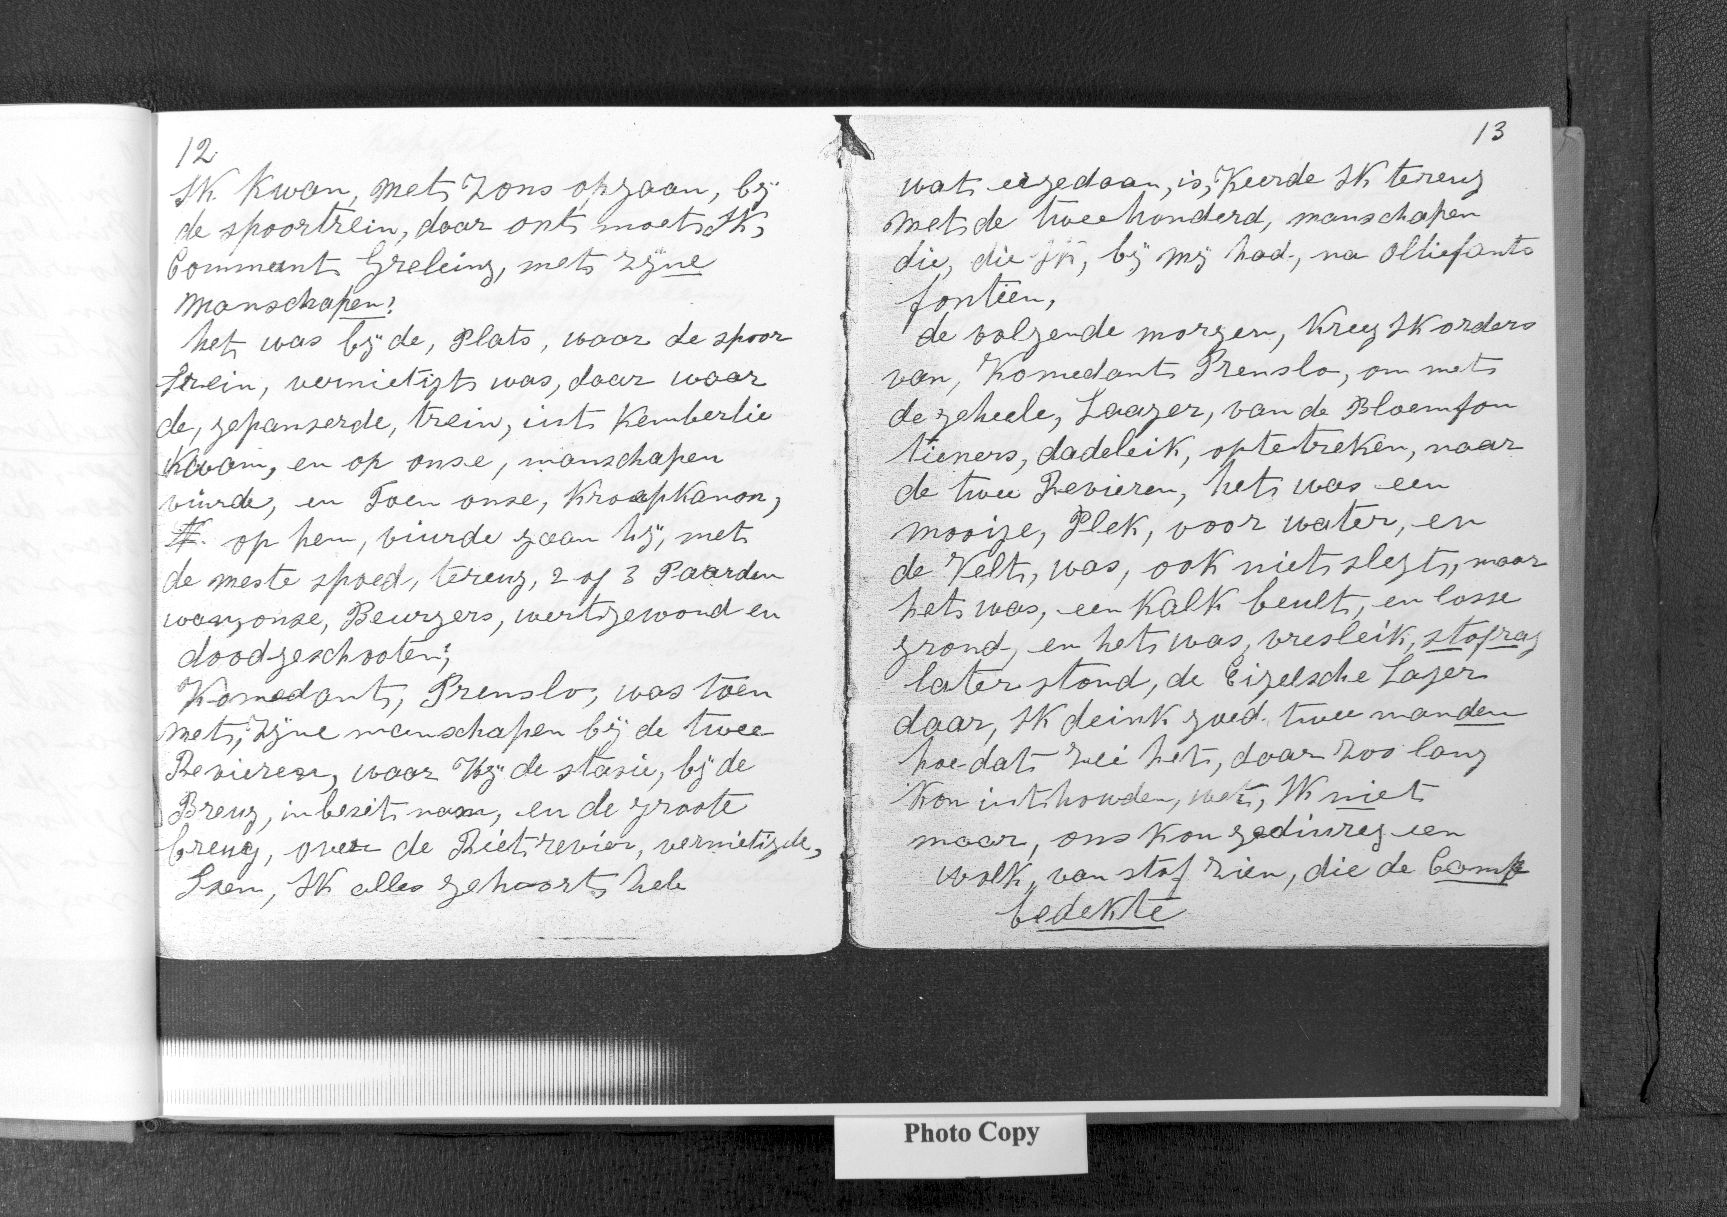 12
Ik Kwan, met Zons opgaan, bÿ
de spoortrein, daar ont moet Ik,
Comment Greleing, met zÿne
manschapen;
het was bÿ de, Plats, waar de spoor
trein, vernietigt was, daar waar
de, gepanserde, trein, uit Kemberlie
Kwam, en op onse, manschapen
viurde, en Toen onse, Kroapkanon,
op hen, viurde gaan hÿ, met
de meste spoed, tereug, 2 of 3 Paarden
van onse, Beurgers, wert gewond en
dood geschooten;
Komedant, Prenslo, was toen
met, Zÿne manschapen bÿ de twee
Revieren, waar Hÿ de stasie, bÿ de
Breug, in beset nam, en de groote
breug, over de Rietrevier, vernietigde,
Toen, Ik alles gehoort heb
13
wat er gedaan, is, Keerde Ik tereug
met de twee honderd, manschapen
die, die Ik, bÿ mÿ had, na Olliefants
fontien,
de volgende morgen, Kreeg Ik orders
van, Komedant Prenslo, om met
de geheele, Laager, van de Bloemfon
tieners, dadeleik, op te treken, naar
de twee Revieren, het was een
mooige, Plek, voor water, en
de Velt, was, ook niet slegt, maar
het was, een Kalk beult, en losse
grond, en het was, vresleik, stofrag
later stond, de Eigelsche Lager
daar, Ik deink goed twee manden
hoe dat zei het, daar zoo lang
Kon uithouden, wet, Ik niet
maar, ons Kon gediureg een
wolk, van stof zien, die de Camp
bedekte
Photo Copy